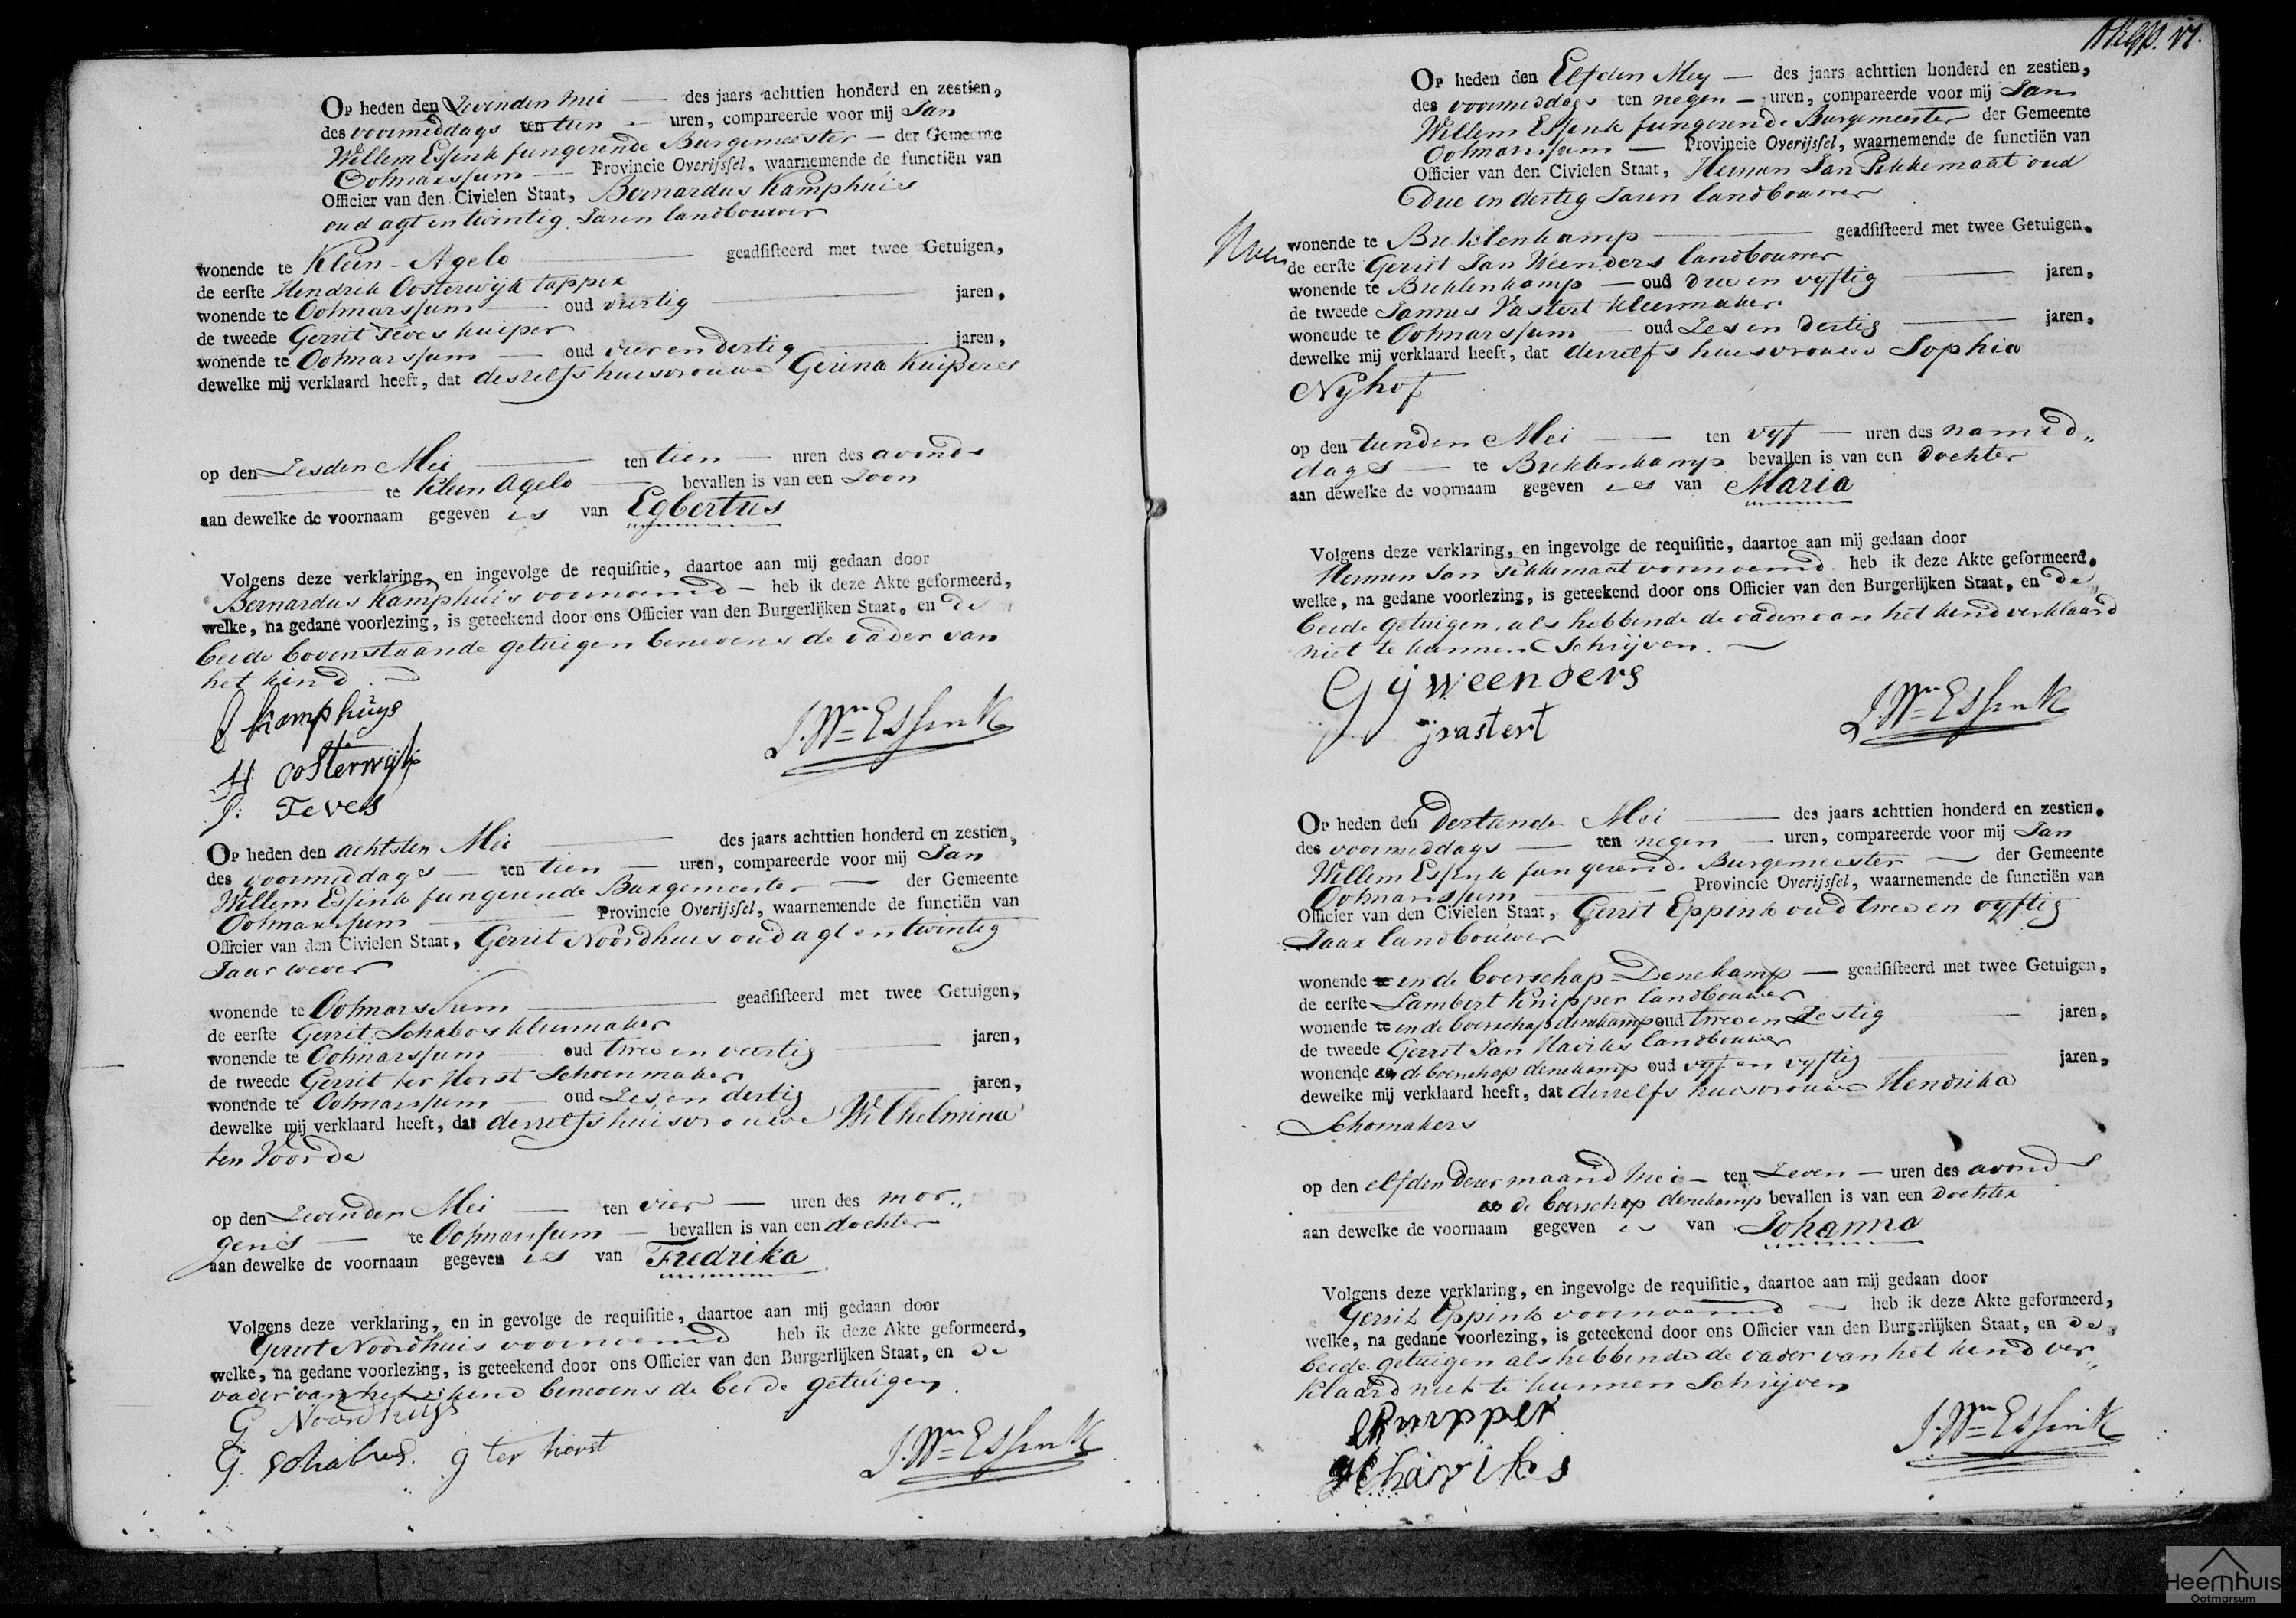 Op heden den Zevenden Mei — des jaars achttien honderd en zestien,
des voormiddags ten tien — uren, compareerde voor mij Jan
Willem Essink fungerende Burgemeester — der Gemeente
Ootmarssum — Provincie Overijssel, waarnemende de functiën van
Officier van den Civielen Staat, Bernardus Kamphuis
oud agt en twintig Jaren landbouwer
wonende te Klein-Agelo — geadsisteerd met twee Getuigen,
de eerste Hendrik Oosterwijk tapper
wonende te Ootmarssum — oud viertig — jaren,
de tweede Gerrit Teves kuiper
wonende te Ootmarssum — oud vier en dertig — jaren,
dewelke mij verklaard heeft, dat deszelfs huisvrouwe Gerina Kuipers
op den Zesden Mei — ten tien — uren des avonds
— te Klein Agelo — bevallen is van een Zoon
aan dewelke de voornaam gegeven is van Egbertus
Volgens deze verklaring, en ingevolge de requisitie, daartoe aan mij gedaan door
Bernardus Kamphuis voornoemd — heb ik deze Akte geformeerd,
welke, na gedane voorlezing, is geteekend door ons Officier van den Burgerlijken Staat, en de
beide bovenstaande getuigen benevens de vader van
het kind.
Kamphuys
J. Wm Essink
H Oosterwijk
G: Teves
Op heden den achtsten Mei — des jaars achttien honderd en zestien,
des voormiddags — ten tien — uren, compareerde voor mij Jan
Willem Essink fungerende Burgemeester — der Gemeente
Ootmarssum — Provincie Overijssel, waarnemende de functiën van
Officier van den Civielen Staat, Gerrit Noordhuis oud agt en twintig
Jaar wever
wonende te Ootmarssum — geadsisteerd met twee Getuigen,
de eerste Gerrit Schabos kleermaker
wonende te Ootmarssum — oud twee en veertig — jaren,
de tweede Gerrit ter Horst Schoenmaker
wonende te Ootmarssum — oud Zes en dertig — jaren,
dewelke mij verklaard heeft, dat deszelfs huisvrouwe Wilhelmina
ten Voorde
op den Zevenden Mei — ten vier — uren des mor„
gens — te Ootmarssum — bevallen is van een dochter
aan dewelke de voornaam gegeven is van Fredrika
Volgens deze verklaring, en in gevolge de requisitie, daartoe aan mij gedaan door
Gerrit Noordhuis voornoemd heb ik deze Akte geformeerd,
welke, na gedane voorlezing, is geteekend door ons Officier van den Burgerlijken Staat, en de
vader van het kind benevens de beide getuigen.
G Noordhuys
G. Schabos. g ter horst
J. Wm Essink
Op heden den Elfden Mey — des jaars achttien honderd en zestien,
des voormiddags ten negen — uren, compareerde voor mij Jan
Willem Essink fungerende Burgemeester der Gemeente
Ootmarssum — Provincie Overijssel, waarnemende de functiën van
Officier van den Civielen Staat, Hermen Jan Pikkemaat oud
Drie en dertig Jaren landbouwer
wonende te Breklenkamp — geadsisteerd met twee Getuigen,
de eerste Gerrit Jan Weenders landbouwer
wonende te Breklenkamp — oud drie en vyftig — jaren,
de tweede Jannes Vastert kleermaker
wonende te Ootmarssum — oud Zes en dertig — jaren,
dewelke mij verklaard heeft, dat deszelfs huisvrouwe Sophia
Nyhof
op den tienden Mei — ten vyf — uren des namid„
dags — te Breklenkamp bevallen is van een dochter
aan dewelke de voornaam gegeven is van Maria
Volgens deze verklaring, en ingevolge de requisitie, daartoe aan mij gedaan door
Hermen Jan Pikkemaat voornoemd heb ik deze Akte geformeerd,
welke, na gedane voorlezing, is geteekend door ons Officier van den Burgerlijken Staat, en de
beide getuigen, als hebbende de vader van het kind verklaard
niet te kunnen Schrijven.
G J weenders
J. Wm Essink
j vastert
Op heden den dertiende Mei — des jaars achttien honderd en zestien,
des voormiddags — ten negen — uren, compareerde voor mij Jan
Willem Essink fungerende Burgemeester — der Gemeente
Ootmarssum — Provincie Overijssel, waarnemende de functiën van
Officier van den Civielen Staat, Gerrit Eppink oud twee en vyftig
Jaar landbouwer
wonende in de boerschap Denekamp — geadsisteerd met twee Getuigen,
de eerste Lambert Knipper landbouwer
wonende te in de boerschap denekamp oud twee en Zestig — jaren,
de tweede Gerrit Jan Haviks landbouwer
wonende in de boerschap denekamp oud vyf en vyftig — jaren,
dewelke mij verklaard heeft, dat deszelfs huisvrouwe Hendrika
Schomakers
op den elfden dezer maand Mei — ten Zeven — uren des avonds
— de boerschap denekamp bevallen is van een dochter
aan dewelke de voornaam gegeven is van Johanna
Volgens deze verklaring, en ingevolge de requisitie, daartoe aan mij gedaan door
Gerrit Eppink voornoemd — heb ik deze Akte geformeerd,
welke, na gedane voorlezing, is geteekend door ons Officier van den Burgerlijken Staat, en de
beide getuigen als hebbende de vader van het kind ver„
klaard niet te kunnen Schrijven
J. Wm Essink
haviks
Heemhuis
Ootmarsum